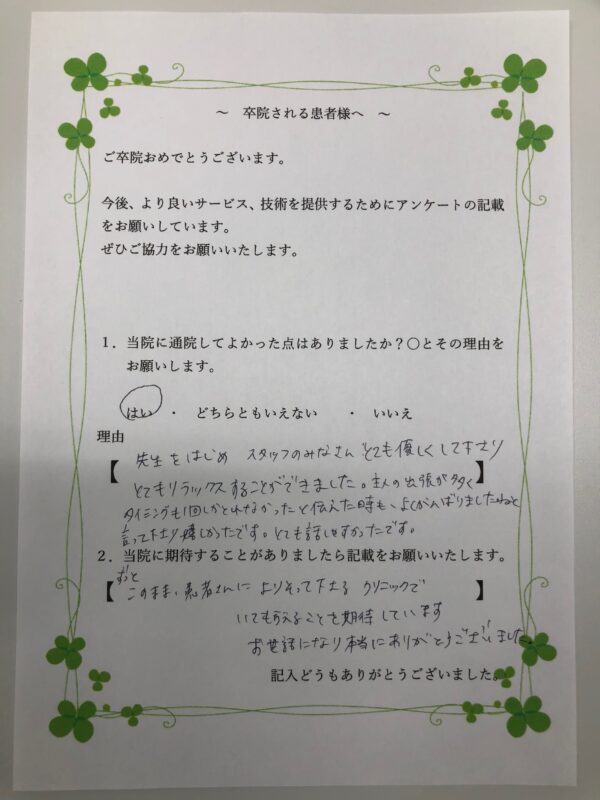 ～　卒院される患者様へ　～
ご卒院おめでとうございます。
今後、より良いサービス、技術を提供するためにアンケートの記載
をお願いしています。
ぜひご協力をお願いいたします。
１．当院に通院してよかった点はありましたか？〇とその理由を
お願いします。
はい　・　どちらともいえない　・　いいえ
理由
【 先生をはじめ スタッフのみなさん とても優しくして下さり
とてもリラックスすることができました。主人の出張が多く 】
タイミングも1回しかとれなかったと伝えた時も、よくがんばりましたねと
言って下さり嬉しかったです。とても話しやすかったです。
２．当院に期待することがありましたら記載をお願いいたします。
ずっと
【 このまま、患者さんに よりそって下さる クリニックで 】
いてもらえることを期待しています
お世話になり本当にありがとうございました。
記入どうもありがとうございました。